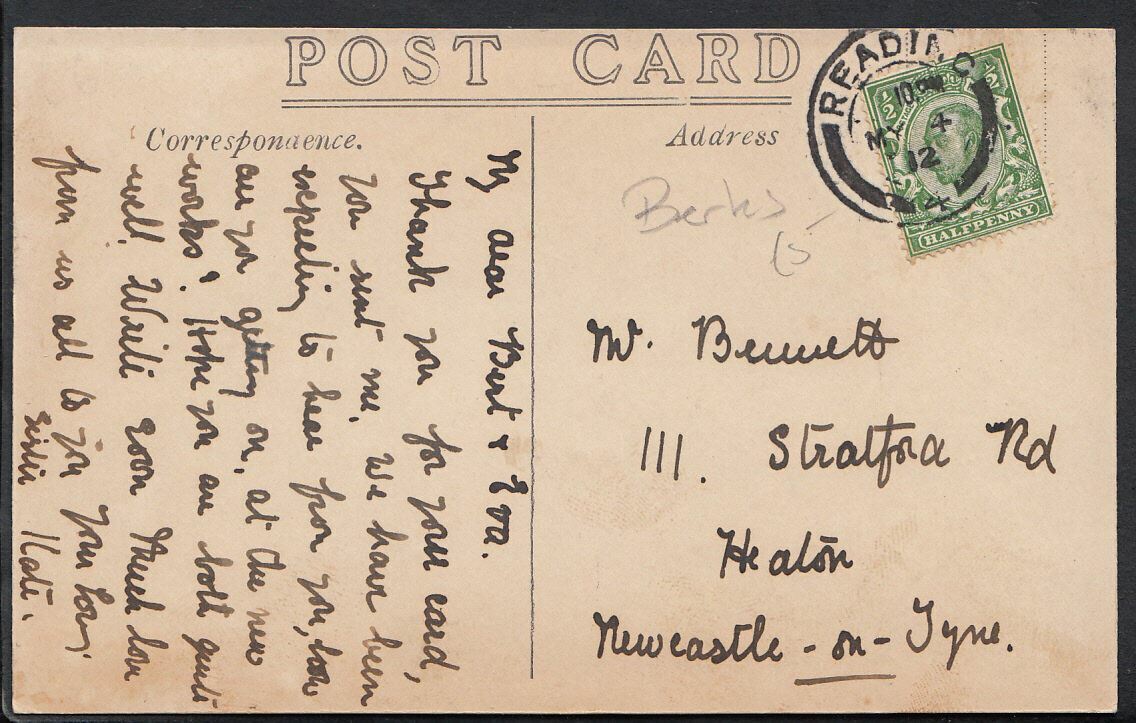 POST CARD
Correspondence.
Address
READING
10 PM
MY 4
12
½
½
HALFPENNY
Berks
15
My dear Bert & Eva.
Thank you for your card,
you sent me. We have been
expecting to hear from you, how
are you getting on, at the new
works. Hope you are both quite
well. Write soon Much love
from us all to you your lovg.
Sister Kate.
Mr. Bennett
111. Stratford Rd
Heaton
Newcastle-on-Tyne.